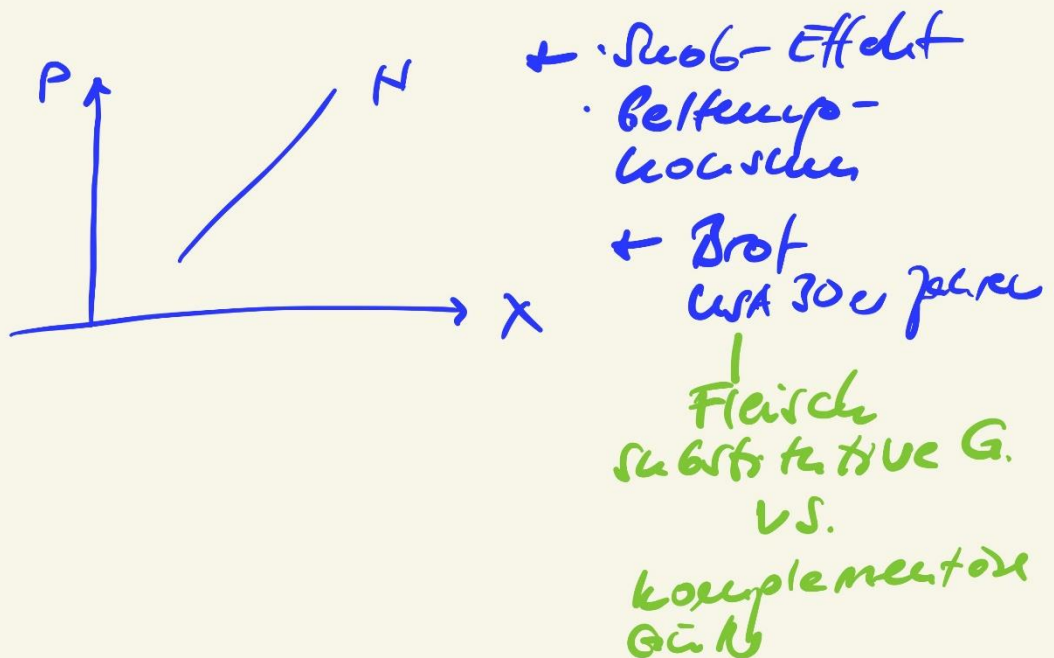 P
N
X
← · Snob-Effekt
· Geltungs-
konsum
← Brot
USA 30er Jahren
Fleisch
substitutive G.
vs.
komplementäre
Güter